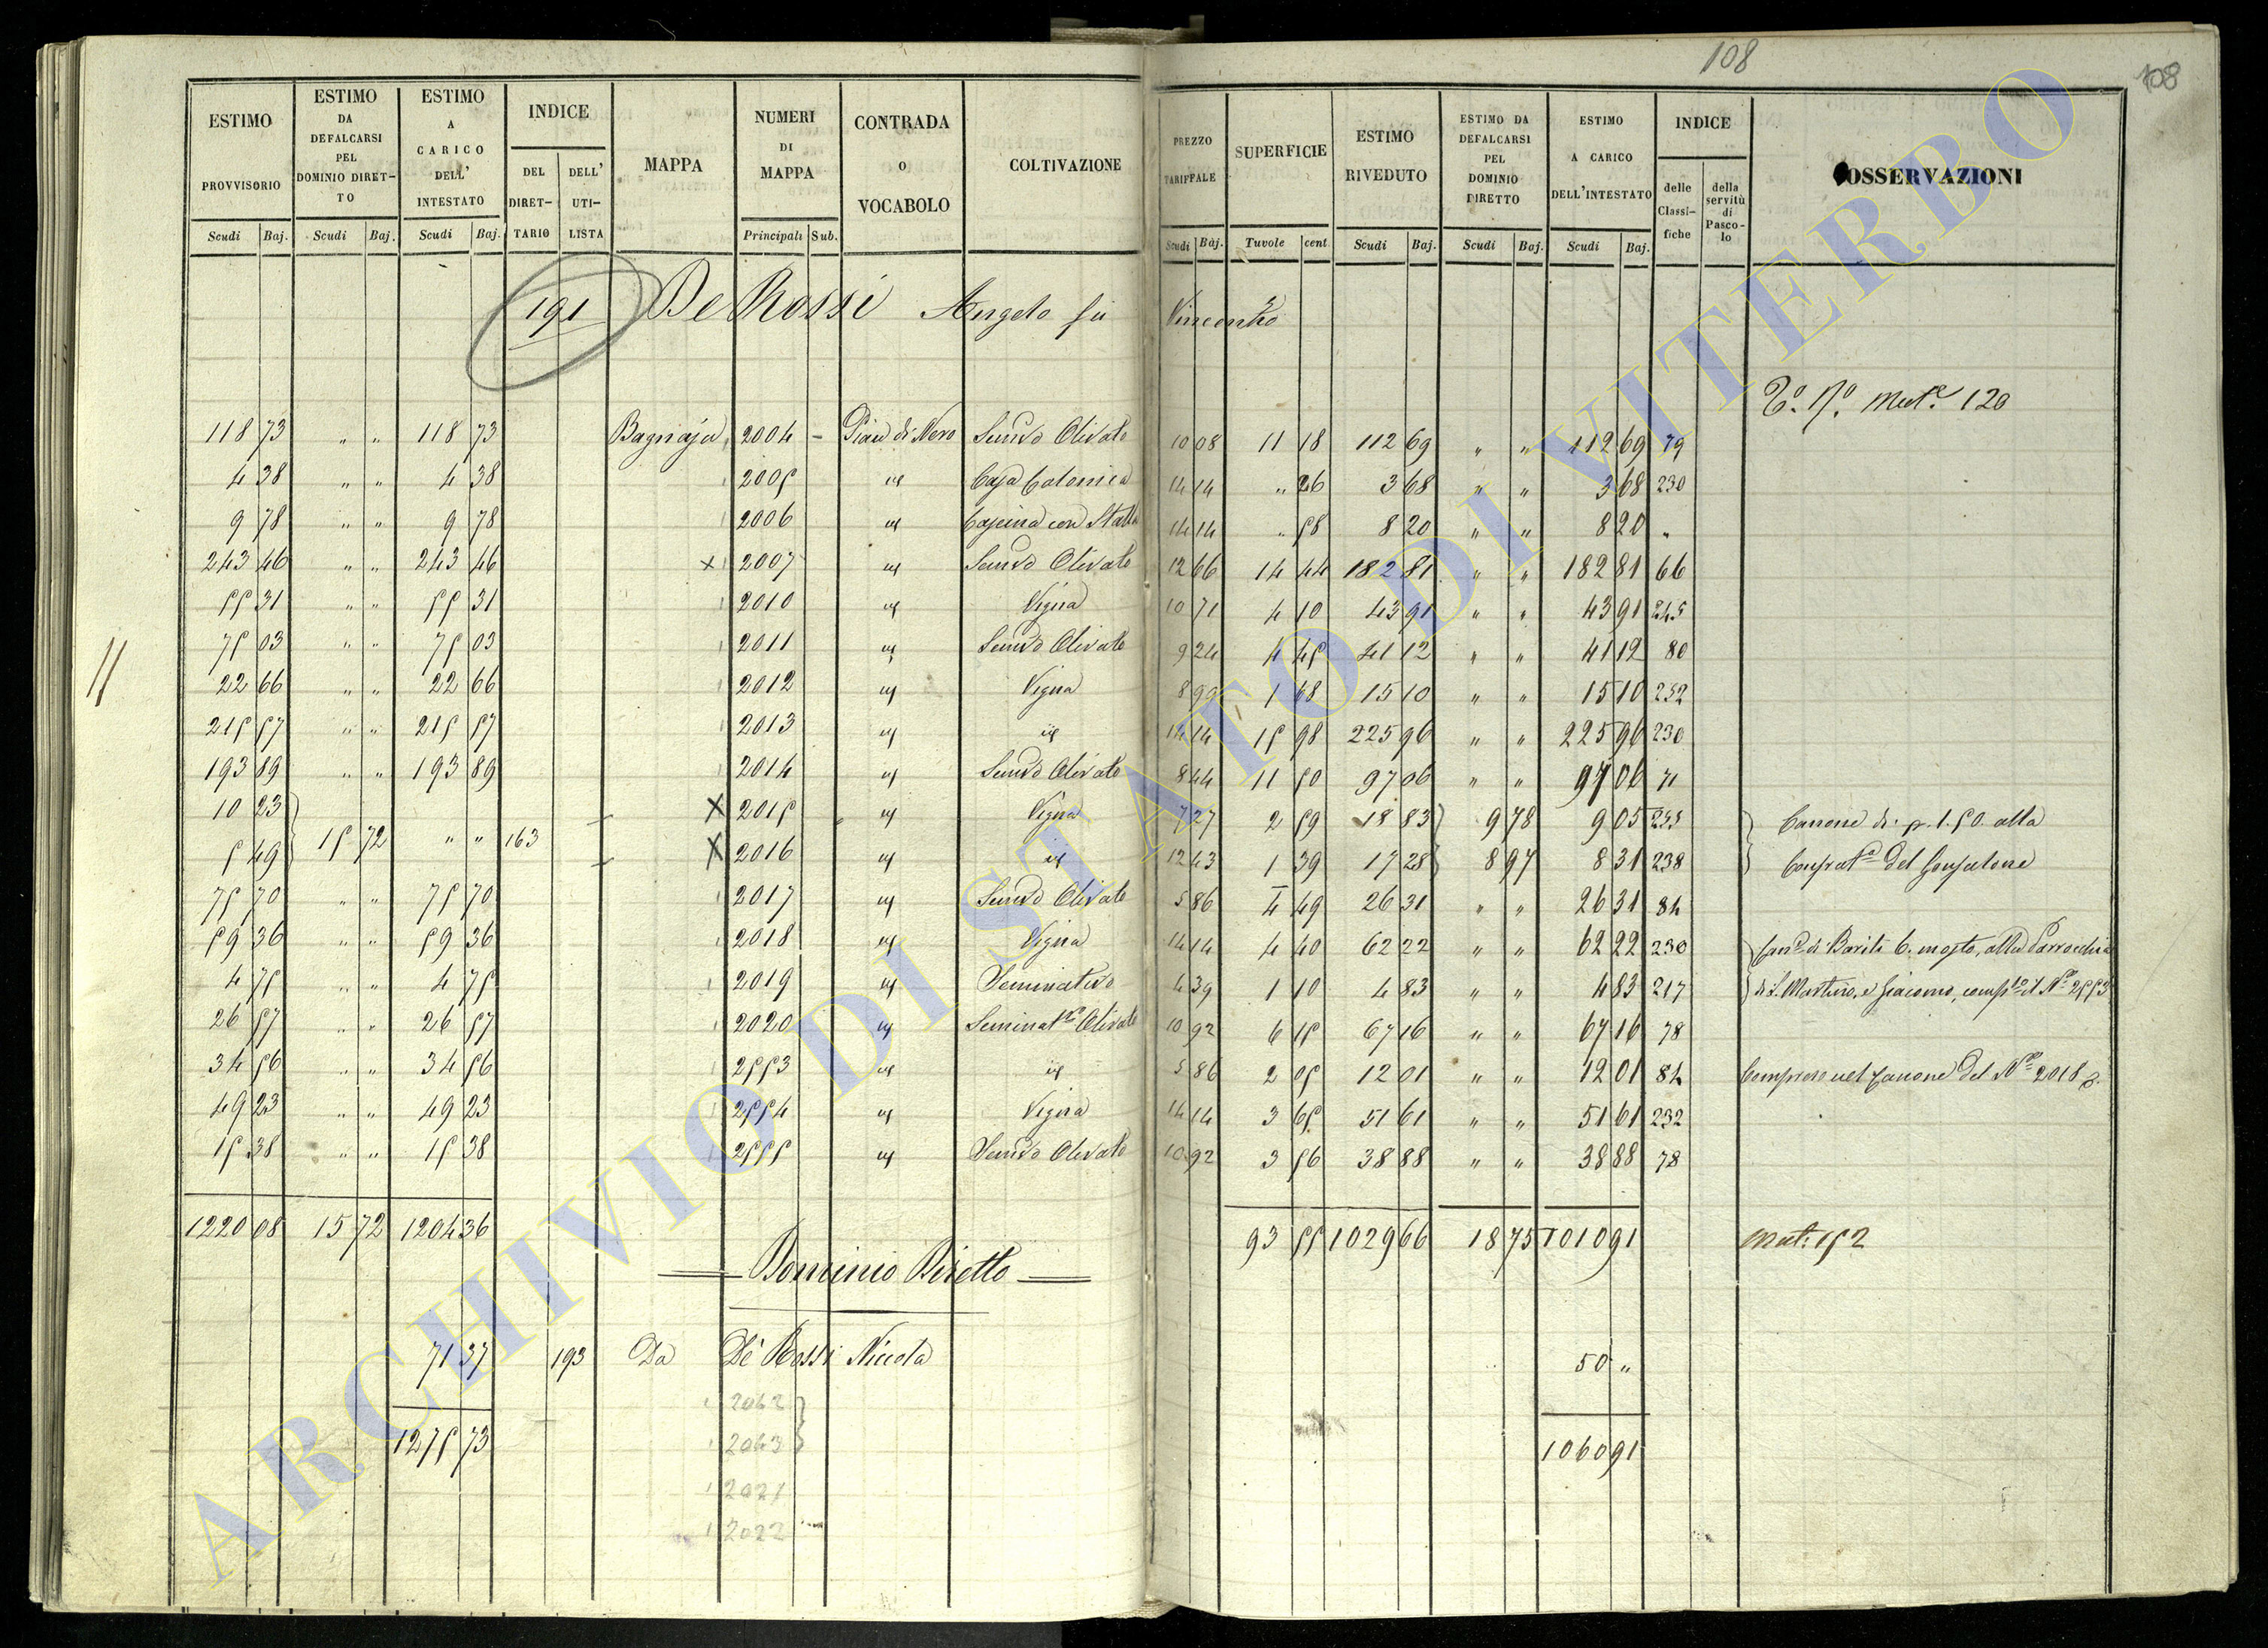 108
108
ESTIMO PROVVISORIO | ESTIMO DA DEFALCARSI PEL DOMINIO DIRETTO | ESTIMO A CARICO DELL' INTESTATO | INDICE | MAPPA | NUMERI DI MAPPA | CONTRADA O VOCABOLO | COLTIVAZIONE | PREZZO TARIFFALE | SUPERFICIE | ESTIMO RIVEDUTO | ESTIMO DA DEFALCARSI PEL DOMINIO DIRETTO | ESTIMO A CARICO DELL'INTESTATO | INDICE | OSSERVAZIONI
DEL DIRET-TARIO | DELL' UTI-LISTA | delle Classi-fiche | della servitù di Pasco-lo
Scudi Baj. | Scudi Baj. | Scudi Baj. | Principali Sub. | Scudi Baj. | Tavole cent. | Scudi Baj. | Scudi Baj. | Scudi Baj.
191 De Rossi Angelo fu Vincenzo
Mut.e 120
118 73 " " 118 73 Bagnaja 2004 - Pian di Nero Semvo Olivato 10 08 11 18 112 69 " " 112 69 79
4 38 " " 4 38 2005 id Casa Colonica 14 14 " 26 3 68 " " 3 68 230
9 78 " " 9 78 2006 id Cascina con Stalla 14 14 " 58 8 20 " " 8 20 "
243 46 " " 243 46 x 2007 id Semvo Olivato 12 66 14 44 182 81 " " 182 81 66
55 31 " " 55 31 2010 id Vigna 10 71 4 10 43 91 " " 43 91 245
75 03 " " 75 03 2011 id Semvo Olivato 9 24 4 45 41 12 " " 41 12 80
22 66 " " 22 66 2012 id Vigna 8 99 1 68 15 10 " " 15 10 252
215 57 " " 215 57 2013 id id 14 14 15 98 225 96 " " 225 96 230
193 89 " " 193 89 2014 id Semvo Olivato 8 44 11 50 97 06 " " 97 06 71
10 23 x 2015 " id Vigna 7 27 2 59 18 83 9 78 9 05 255 Canone di p. 1.50 alla
5 49 15 72 " " 163 x 2016 id id 12 43 1 39 17 28 8 97 8 31 238 Confrata del Gonfalone
75 70 " " 75 70 2017 id Semvo Olivato 5 86 4 49 26 31 " " 26 31 84
59 36 " " 59 36 2018 id Vigna 14 14 4 40 62 22 " " 62 22 230 Cane di Barili 6. mosto, alla Parrocchia
4 75 " " 4 75 2019 id Seminativo 4 39 1 10 4 83 " " 4 83 217 di S. Martino, e Giacomo, compso il No 2553
26 57 " " 26 57 2020 id Seminatvo Olivato 10 92 6 15 67 16 " " 67 16 78
34 56 " " 34 56 2553 id id 5 86 2 05 12 01 " " 12 01 84 Compreso nel Canone del No 2018
49 23 " " 49 23 2554 id Vigna 14 14 3 65 51 61 " " 51 61 232
15 38 " " 15 38 2555 id Semvo Olivato 10 92 3 56 38 88 " " 38 88 78
1220 08 15 72 1204 36 93 55 1029 66 18 75 1010 91 Mut: 152
Dominio Diretto
71 37 193 Da De Rossi Niccola 50 "
2062
1275 73 2063 1060 91
2021
2022
ARCHIVIO DI STATO DI VITERBO